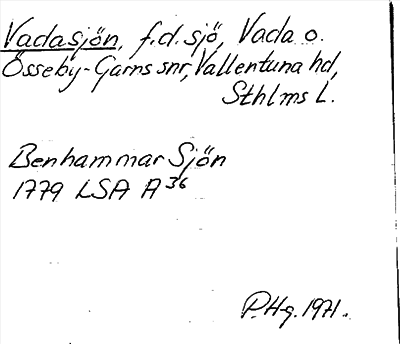 Vadasjön, f.d. sjö, Vada o.
Össeby-Garns snr, Vallentuna hd,
Sthlms L.
Benhammar Sjön
1779 LSA A 36
P.Hg. 1971.